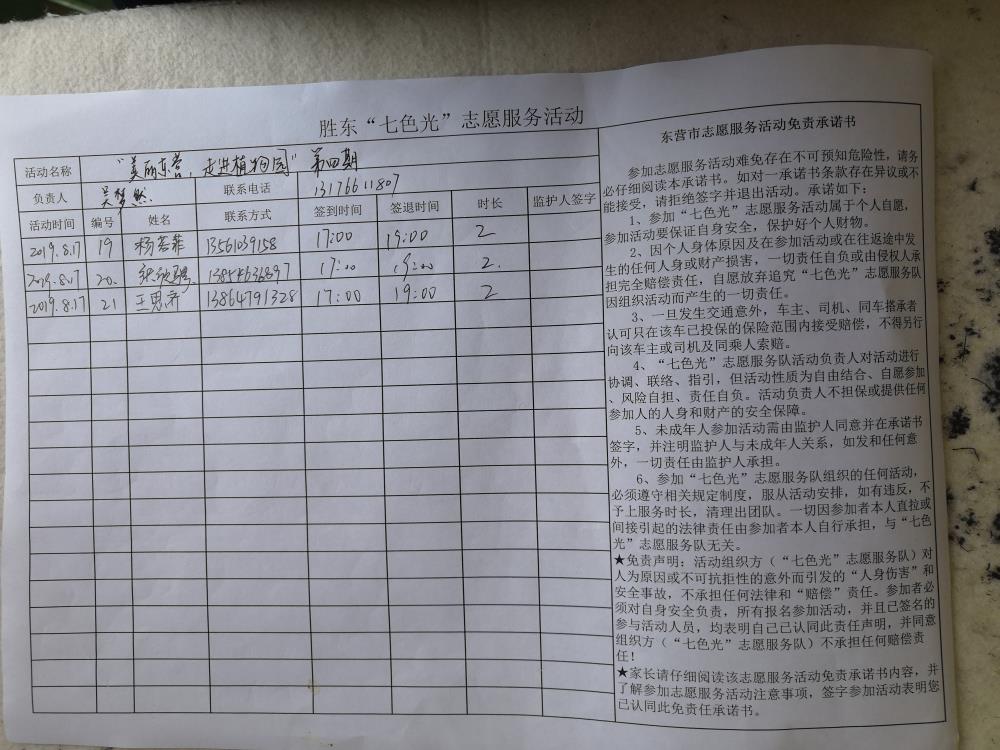 胜东“七色光”志愿服务活动
活动名称 “美丽东营，走进植物园”第四期
负责人 吴梦然 联系电话 13176611807
活动时间 编号 姓名 联系方式 签到时间 签退时间 时长 监护人签字
2019.8.17 19 杨若菲 13561039158 17:00 19:00 2
2019.8.17 20. 13854636897 17:00 19:00 2.
2019.8.17 21 王思齐 13864791328 17:00 19:00 2
东营市志愿服务活动免责承诺书
参加志愿服务活动难免存在不可预知危险性，请务
必仔细阅读本承诺书。如对一承诺书条款存在异议或不
能接受，请拒绝签字并退出活动。承诺如下：
1、参加“七色光”志愿服务活动属于个人自愿，
参加活动要保证自身安全，保护好个人财物。
2、因个人身体原因及在参加活动或在往返途中发
生的任何人身或财产损害，一切责任自负或由侵权人承
担完全赔偿责任，自愿放弃追究“七色光”志愿服务队
因组织活动而产生的一切责任。
3、一旦发生交通意外，车主、司机、同车搭承者
认可只在该车已投保的保险范围内接受赔偿，不得另行
向该车主或司机及同乘人索赔。
4、“七色光”志愿服务队活动负责人对活动进行
协调、联络、指引，但活动性质为自由结合、自愿参加
、风险自担、责任自负。活动负责人不担保或提供任何
参加人的人身和财产的安全保障。
5、未成年人参加活动需由监护人同意并在承诺书
签字，并注明监护人与未成年人关系，如发和任何意
外，一切责任由监护人承担。
6、参加“七色光”志愿服务队组织的任何活动，
必须遵守相关规定制度，服从活动安排，如有违反，不
予上服务时长，清理出团队。一切因参加者本人直拉或
间接引起的法律责任由参加者本人自行承担，与“七色
光”志愿服务队无关。
★免责声明：活动组织方（“七色光”志愿服务队）对
人为原因或不可抗拒性的意外而引发的“人身伤害”和
安全事故，不承担任何法律和“赔偿”责任。参加者必
须对自身安全负责，所有报名参加活动，并且已签名的
参与活动人员，均表明自己已认同此责任声明，并同意
组织方（“七色光”志愿服务队）不承担任何赔偿责
任！
★家长请仔细阅读该志愿服务活动免责承诺书内容，并
了解参加志愿服务活动注意事项，签字参加活动表明您
已认同此免责任承诺书。